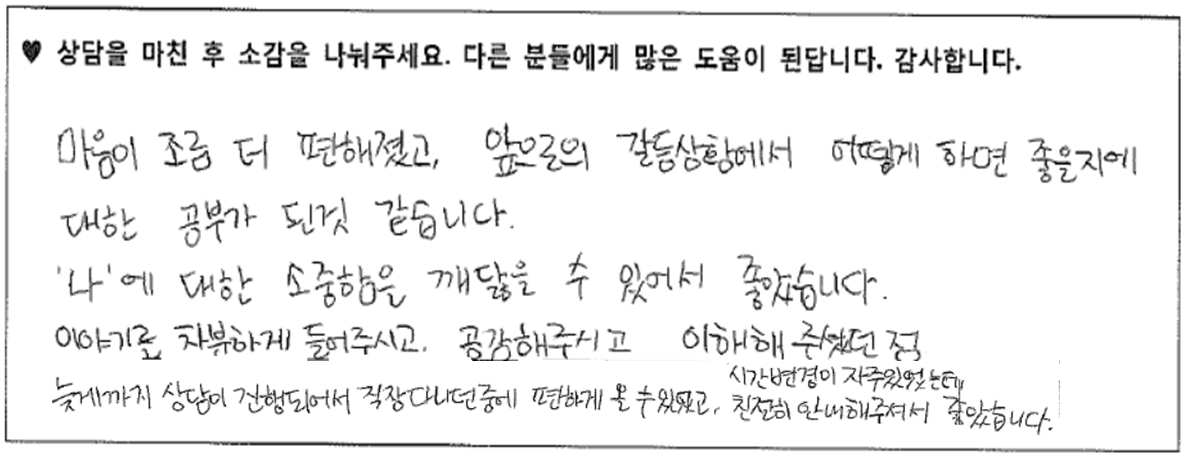 ♥ 상담을 마친 후 소감을 나눠주세요. 다른 분들에게 많은 도움이 된답니다. 감사합니다.
마음이 조금 더 편해졌고, 앞으로의 갈등상황에서 어떻게 하면 좋을지에
대한 공부가 된것 같습니다.
'나'에 대한 소중함을 깨닳을 수 있어서 좋았습니다.
이야기를 차분하게 들어주시고, 공감해주시고 이해해 주셨던 점
늦게까지 상담이 진행되어서 직장다니던중에 편하게 올 수 있었고,
시간변경이 자주있었는데
친절히 안내해주셔서 좋았습니다.